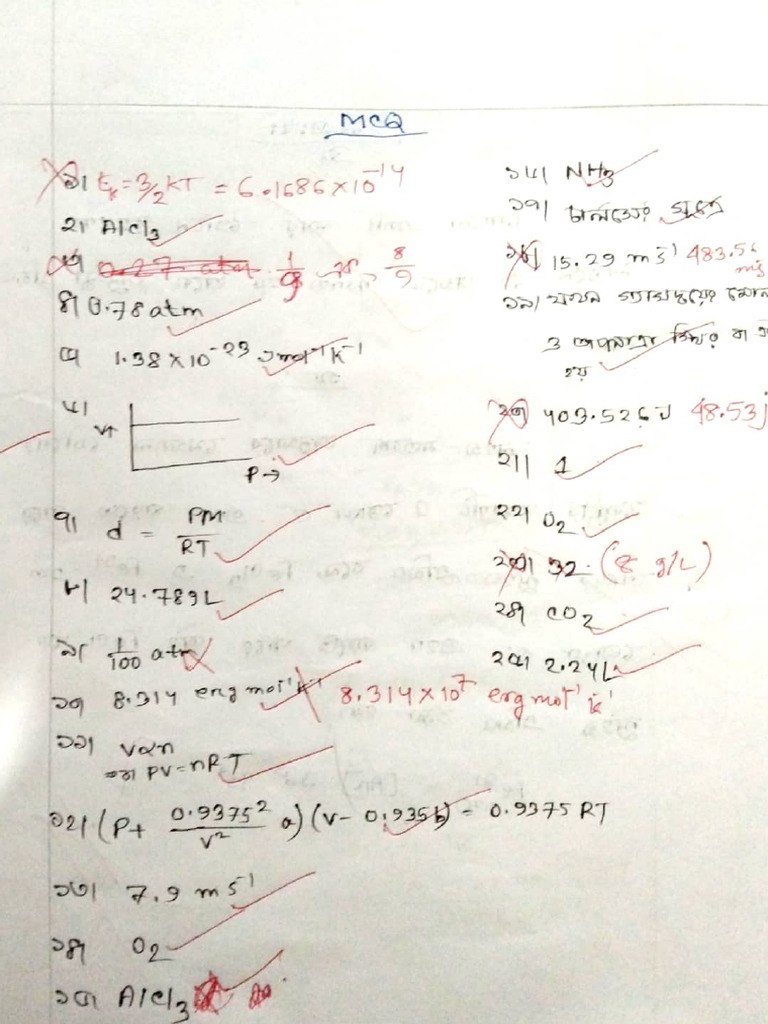 MCQ
১। Eₖ = 3/2 KT = 6.1686×10⁻¹⁴
২। AlCl₃
৩। 1/9 8/9
৪। 0.78 atm
৫। 1.38 × 10⁻²³ J mol⁻¹ K⁻¹
৬।
P →
৭। d = PM/RT
৮। 24.789 L
৯। 1/100 atm
১০। 8.314 erg mol⁻¹ K⁻¹ 8.314×10⁷ erg mol⁻¹ K⁻¹
১১। V∝n
PV = nRT
১২। (P + 0.9375²/V² a)(V − 0.935b) = 0.9375 RT
১৩। 7.9 ms⁻¹
১৪। O₂
১৫। AlCl₃
১৬। NH₃
১৭। চার্লসের সূত্র
১৮। 15.29 ms⁻¹ 483.56 ms
১৯। যখন
ও তাপমাত্রা স্থির বা
হয়
২০। 403.526 J 48.53 j
২১। 1
২২। O₂
২৩। 32 (8 g/L)
২৪। CO₂
২৫। 2.24L